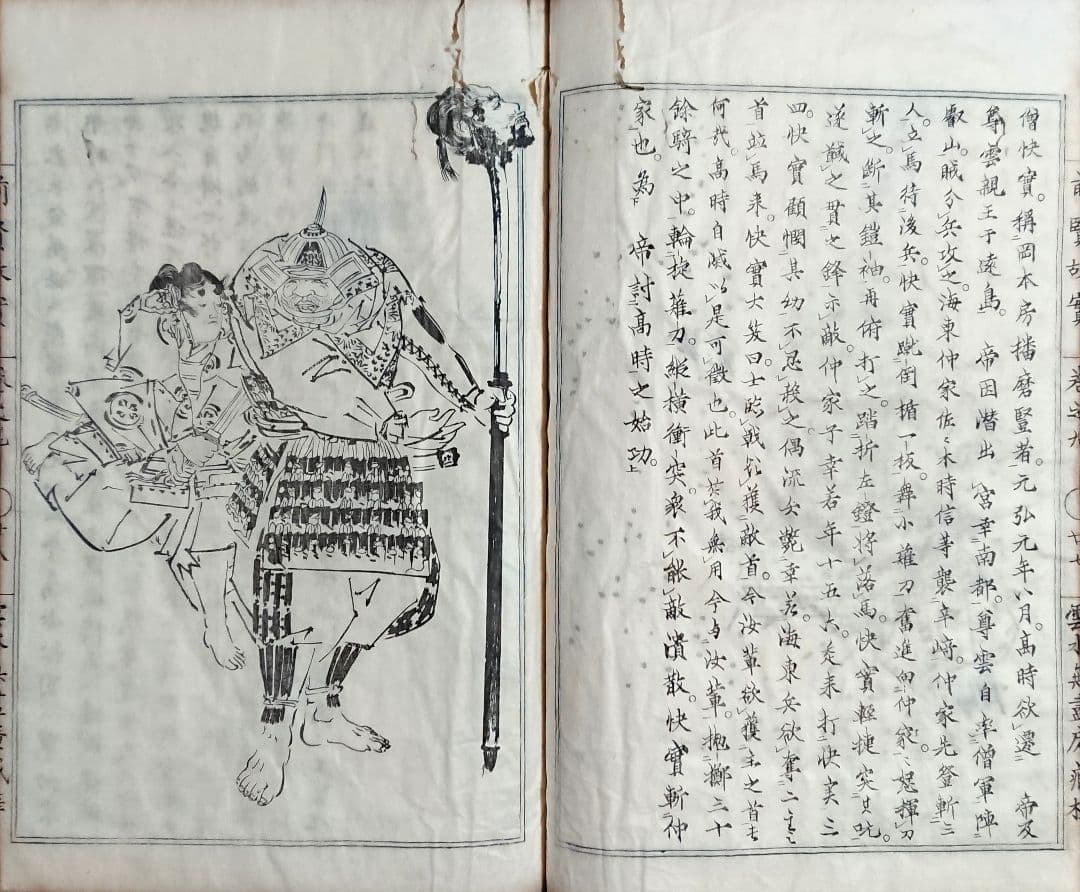 僧快實。稱岡本房播磨豎者。元弘元年八月。高時欲遷 帝及
尊雲親王于遠島。 帝因潜出 宮幸南都。尊雲自率僧軍陣
叡山。賊分兵攻之。海東仲家佐々木時信等襲辛﨑。仲家先登斬三
人。立馬待後兵。快實蹴倒楯一扳。舞小薙刀奮進向仲家。仲家怒揮刀
斬之。斷其鎧袖。再俯打之。踏折左鐙。將落馬。快實輕捷突其吭。
遂馘之貫之鋒示敵。仲家子幸若年十五六。走来打快実三
四。快實顧憫其幼不忍殺之。偶流矢斃幸若。海東兵欲奪二主之
首竝馬来。快實大笑曰。士臨戦欲獲敵首。今汝輩欲獲主之首者
何哉。高時自滅以是可徵也。此首於我無用今与汝輩。抛擲三十
餘騎之中。輪旋薙刀。縦横衝突。衆不能敵潰散。快實斬仲
家也。為 帝討高時之始功。
前賢故實 卷之九 〇廿七 雲水無盡